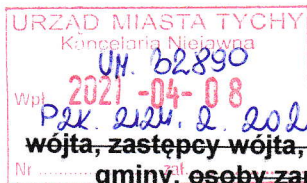 URZĄD MIASTA TYCHY
Kancelaria Niejawna
UM. 62890
Wpł. 2021 -04- 08
PZK. 2124. 2. 202
wójta, zastępcy wójta,
Nr zał.
gminy, osoby za